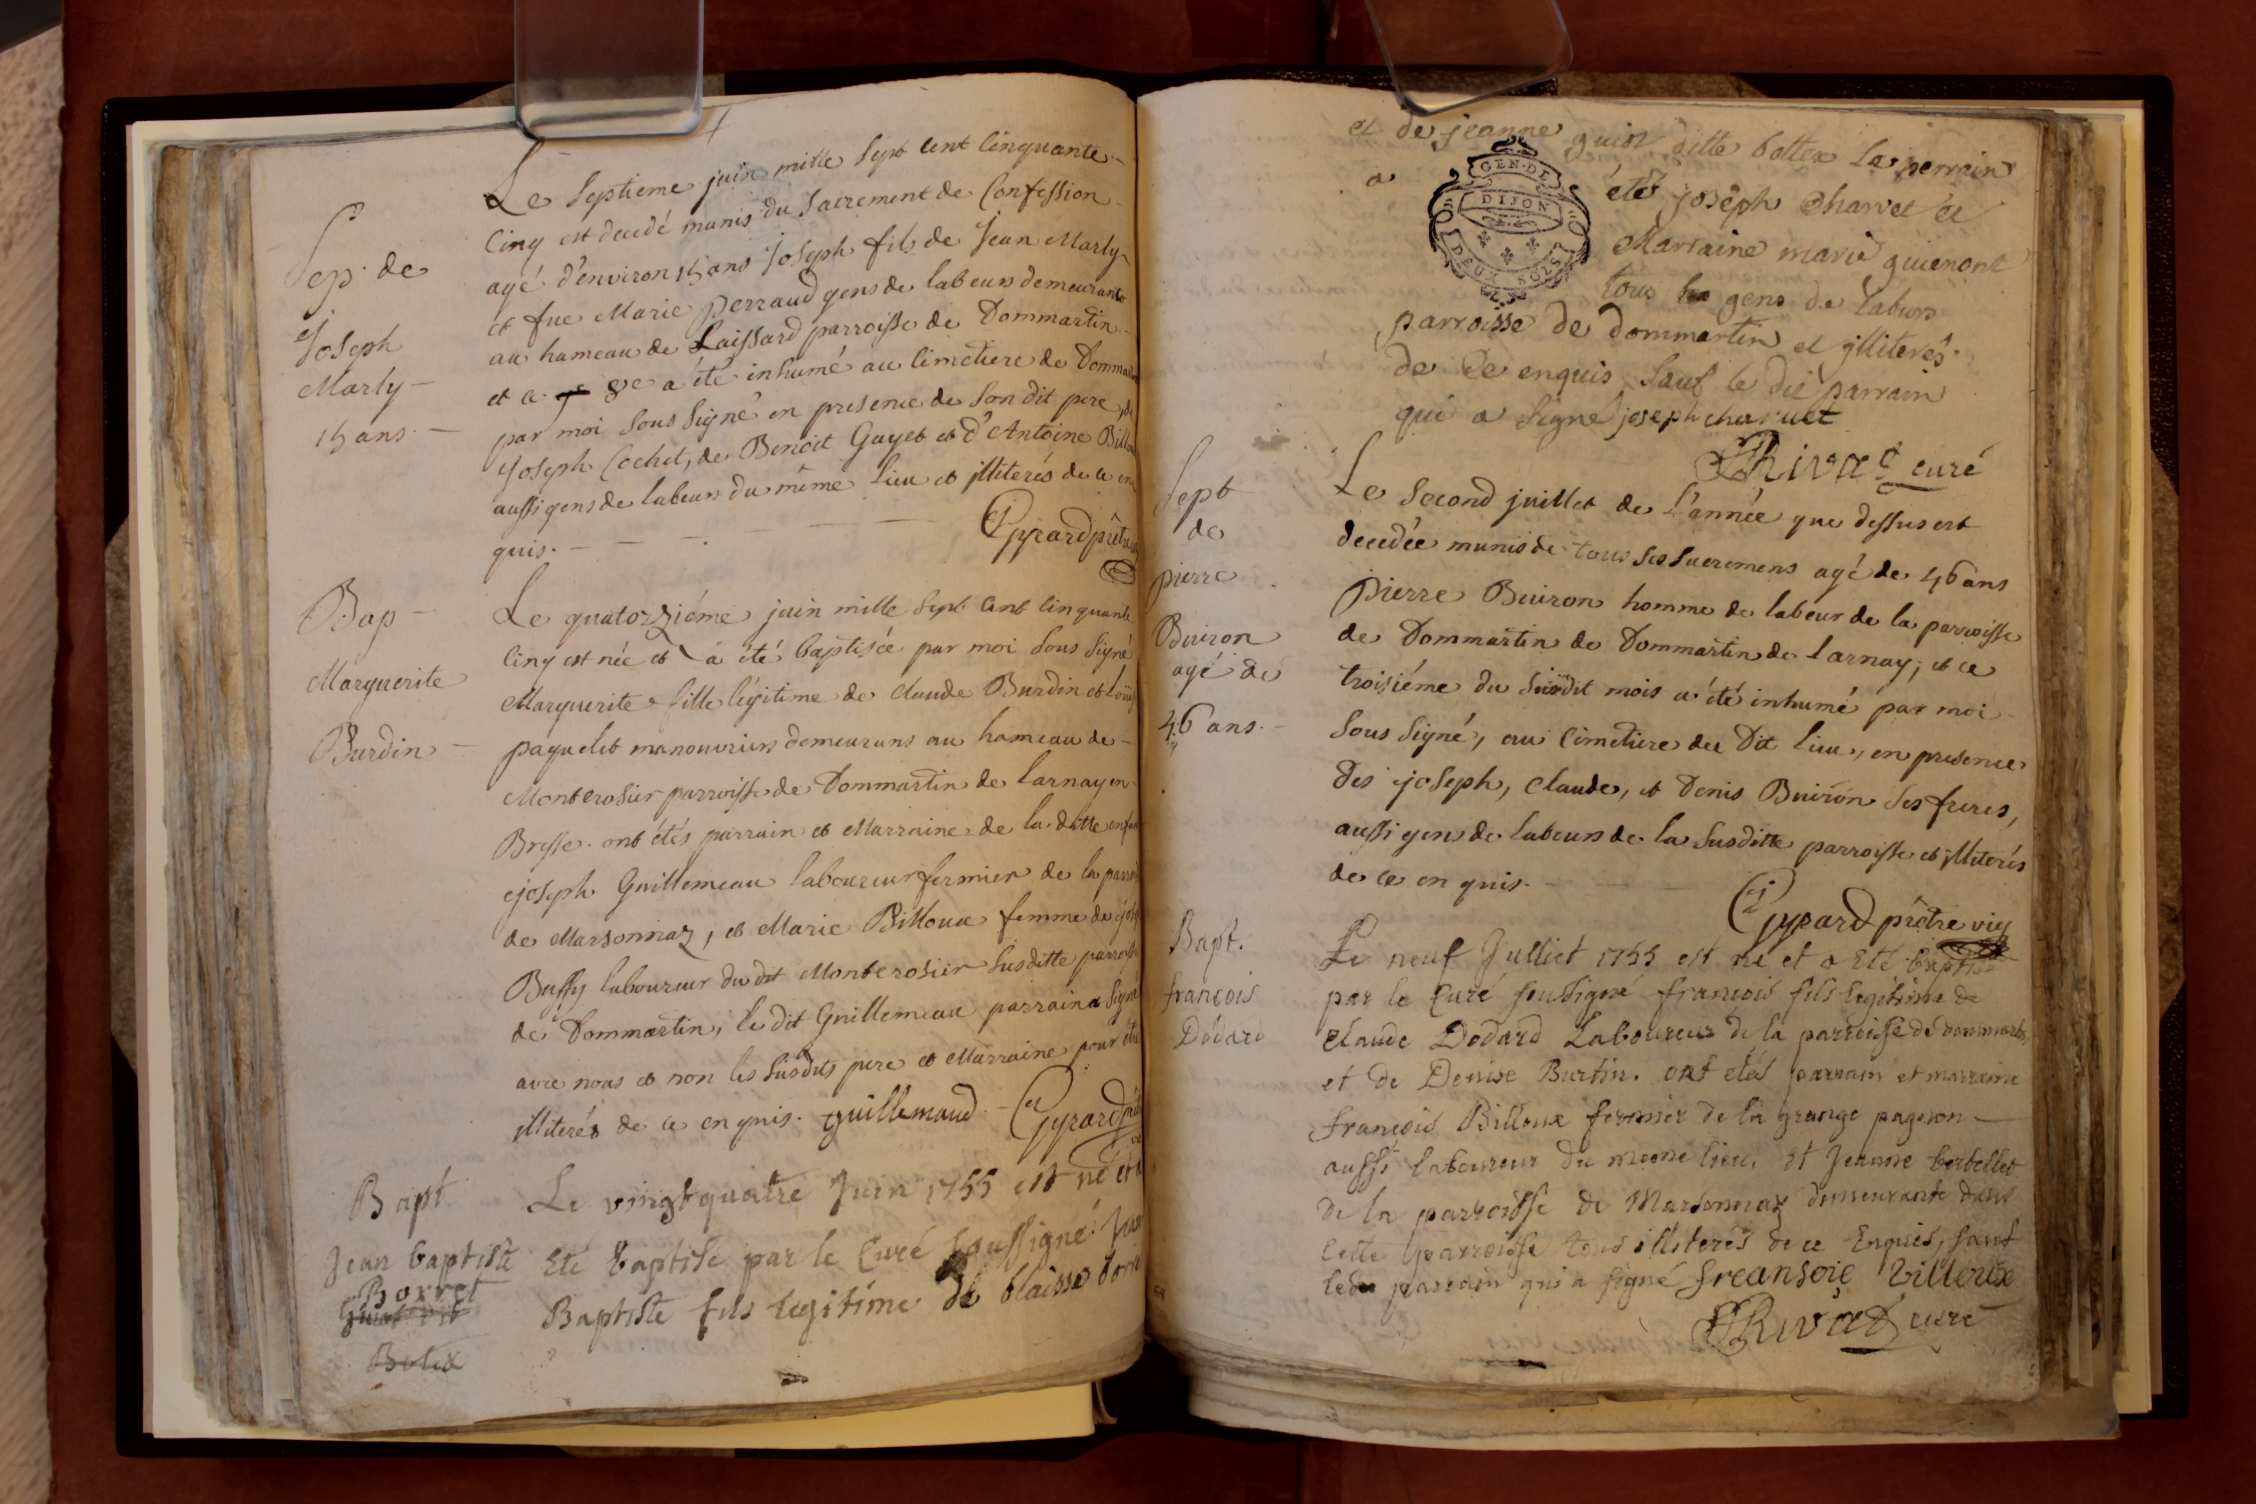 Sep. de
Joseph
Marly
15 ans.
Le Septieme juin mille Sept cent Cinquante
Cinq est decedé munis du Sacrement de Confession
agé d'environ 15 ans Joseph fils de Jean Marly
et fue Marie Perraud gens de labeurs demeurants
au hameau de Laissard parroisse de Dommartin
et ce 8e a été inhumé au Cimetiere de Dommartin
par moi Sous Signé en presence de Son dit pere, de
Joseph Cochet, de Benoit Guyet et d'Antoine
aussi gens de labeurs du même lieu et illiterés de ce en
quis.
Gyrard prêtre
Bap
Marguerite
Burdin
Le quatorziéme juin mille Sept Cent Cinquante
Cinq est née et a été baptisée par moi Sous Signé
Marguerite fille légitime de Claude Burdin et
paquelet manouvriers demeurans au hameau de
Montcrosier parroisse de Dommartin de Larnay en
Bresse. ont étés parrain et Marraine de la ditte
Joseph Guillemeau laboureur fermier de la
de Marsonnaz, et Marie Billoux femme de
Buffy laboureur du dit Montcrosier Susditte parroisse
de Dommartin, le dit Guillemeau parrain a Signé
avec nous et non les Susdits pere et Marraine pour
illiterés de ce enquis. guillemaud Gyrard
Bapt
Jean baptiste
Borret
Le vingt quatre Juin 1755 est né et a
Eté baptisé par le Curé soussigné Jean
Baptiste fils legitime de blaisse
et de jeanne guiot ditte bottex le perrain
a été joseph Charvet et
Marraine marie guienont
tous gens de laburs
GEN. DE
DIJON
DEUX SOLS
parroisse de dommartin et illiterés
de Ce enquis Sauf le dit parrain
qui a Signé joseph charvet
Rivat curé
Sept
de
pierre
Buiron
agé de
46 ans.
Le Second juillet de l'année que dessus est
decedée munis de tous ses Sacremens agé de 46 ans
Pierre Buiron homme de labeur de la parroisse
de Dommartin de Dommartin de Larnay; et ce
troisiéme du Susdit mois a été inhumé par moi
Sous Signé, au Cimetiere du Dit lieu, en presence
des Joseph, Claude, et Denis Buiron Ses freres,
aussi gens de labeurs de la Susditte parroisse et illiterés
de ce en quis.
Gyrard prêtre vic
Bapt.
françois
Dodard
Le neuf Julliet 1755 est né et a Eté baptisé
par le Curé soussigné françois fils legitime de
Claude Dodard Laboureur de la parroisse de dommartin
et de Denise Burtin. ont etés parrain et marraine
françois Billoux fermier de la grange pageron
aussi laboureur du meme lieu, Et Jeanne berbellet
de la parroisse de Marsonnaz demeurante dans
Cette parroisse tous illiterés de ce Enquis, Sauf
parrain qui a signé freansoie billoux
Rivat curé